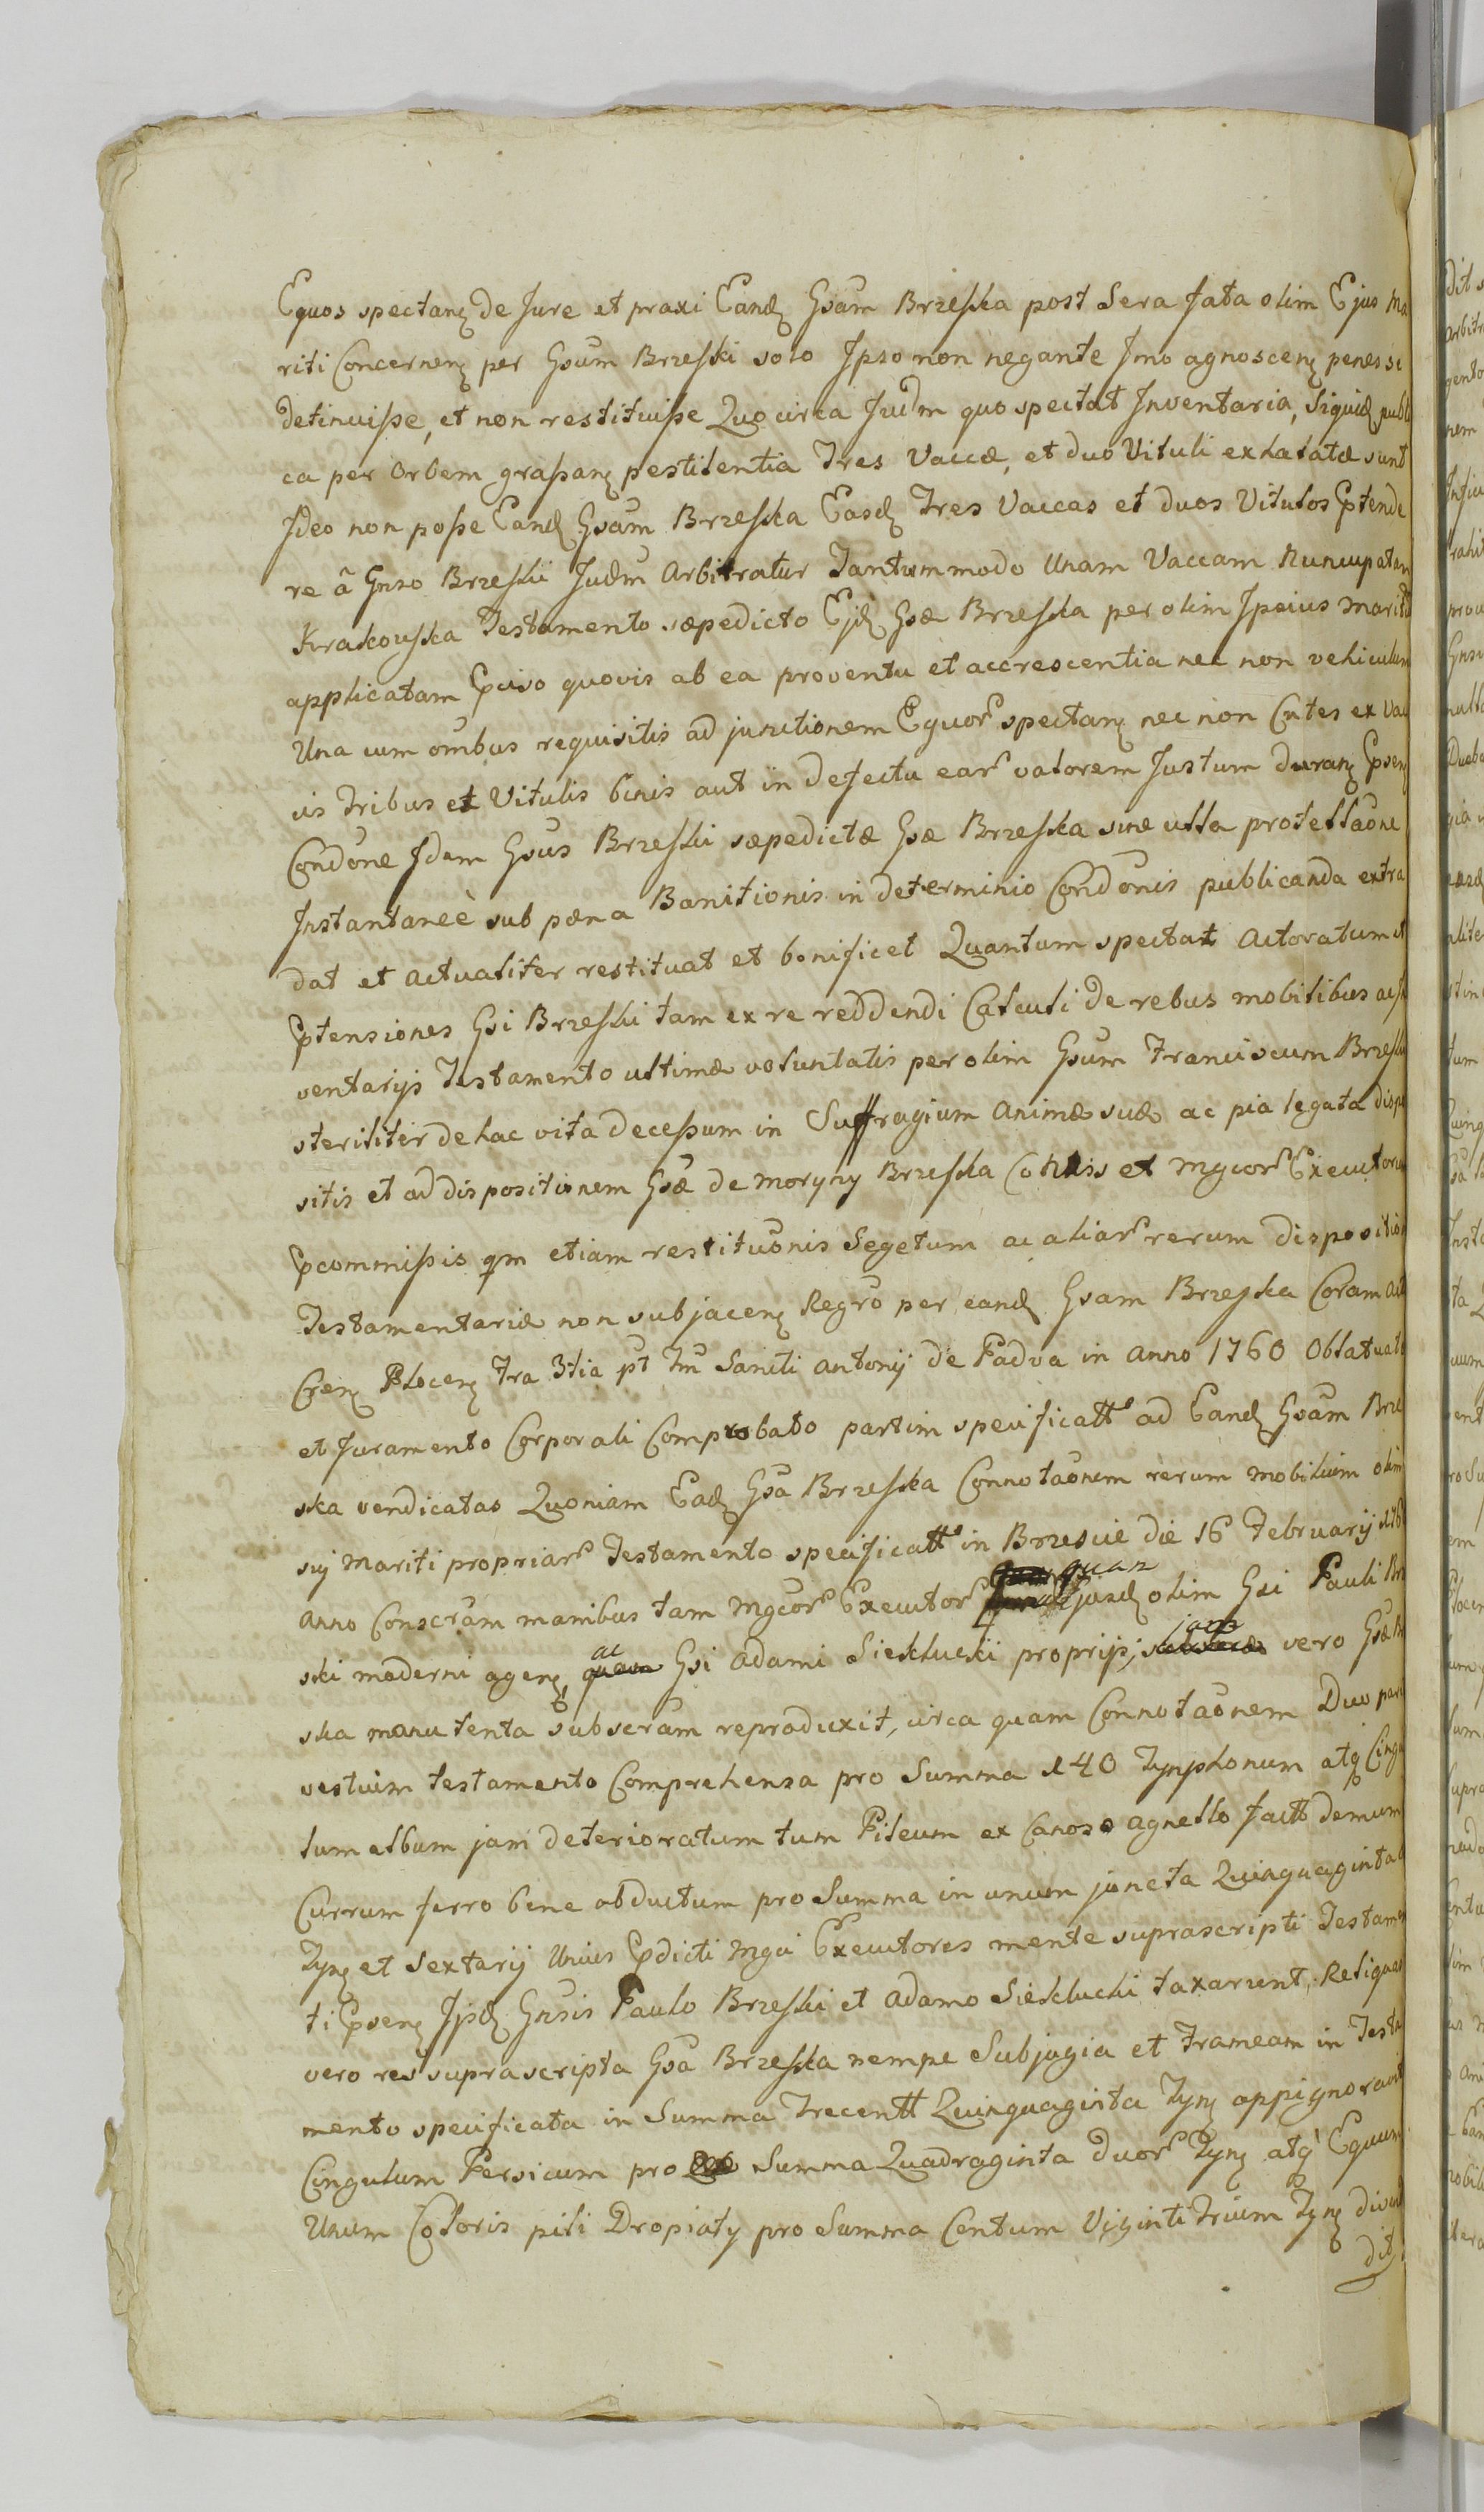 Equos spectanꝫ de Jure et praxi Eandꝫ Gsam Brzeska post Sera fata olim Ejus Ma
riti Concernenꝫ per Gsum Brzeski solo Ipso non negante Imo agnoscenꝫ penes se
detinuisse, et non restituisse Quo circa Judm quo spectat Inventaria, Siquidꝫ publi
ca per Orbem grassanꝫ pestilentia Tres Vaccæ, et duo Vituli exhalatæ sunt
Ideo non posse Eandꝫ Gsam Brzeska Easdꝫ Tres Vaccas et duos Vitulos Ptende
re â Gnso Brzeskii Judm Arbitratur Tantummodo Unam Vaccam Nuncupatam
Krakowska Testamento sæpedicto Ejdꝫ Gsæ Brzeska per olim Ipsius Mariti
applicatam Pciso quovis ab ea proventu et accrescentia nec non vehiculum
Una cum omibus requisitis ad junctionem Equor spectanꝫ nec non Cutes ex Vac
cis Tribus et Vitulis binis aut in defectu ear valorem Justum duranꝫ Psenꝫ
Condone Idem Gsus Brzeski sæpedictæ Gsæ Brzeska sine ulla protellaone
Instantaneè sub pæna Banitionis in determinio Condonis publicanda extra
dat et actualiter restituat et bonificet Quantum spectat Actoratum et
Ptensiones Gsi Brzeski tam ex re reddendi Calculi de rebus mobilibus ac In
ventarijs Testamento ultimæ voluntatis per olim Gsum Franciscum Brzeski
steriliter de hac vita decessum in Suffragium Animæ suæ ac pia legata dispo
sitis et ad dispositionem Gsæ de Moryny Brzeska Cohtis et Mgcor Executorum
Pcommissis qm etiam restituonis Segetum ac aliar rerum disposition
Testamentariæ non subjacenꝫ Regro per eandꝫ Gsam Brzeska Coram Act
Crenꝫ Plocenꝫ Fra 3tia pt Fm Sancti Antonij de Padva in Anno 1760 Oblatuato
et Juramento Corporali Comprobato partim specificatt ad Eandꝫ Gsam Brze
ska vendicatas Quoniam Eadꝫ Gsa Brzeska Connotaonem rerum mobilium olim
suj Mariti propriar Testamento specificatt in Brzescie die 16 Februarij 176
Anno Conscram manibus tam Mgcor Executor quan Ejusdꝫ olim Gsi Pauli Brze
ski moderni agenꝫ, ac Gsi Adami Sieklucki proprijs, jam vero Gsæ Brze
ska manu tenta subscram reproduxit, circa quam Connotaonem Duo paria
vestium testamento Comprehensa pro Summa 140 Tynphonum atqꝫ Cingu
lum album jam deterioratum tum Pileum ex Canoso agnello factt demum
Currum ferro bene obductum pro Summa in unum juncta Quinquaginta
Tynꝫ et Sextarij Unius Pdicti Mgci Executores mente suprascripti Testamen
ti Psenꝫ Ipsdꝫ Gnsis Paulo Brzeski et Adamo Sieklucki taxarunt, Reliquas
vero res suprascripta Gsa Brzeska nempe Subjugia et Frameam in Testa
mento specificata in Summa Trecentt Quinquaginta Tynꝫ oppignoravit
Cingulum Persicum pro Summa Quadraginta duor Tynꝫ atqꝫ Equum
Unum Coloris pili Dropiaty pro Summa Centum Viginti Trium Tynꝫ diven
dit